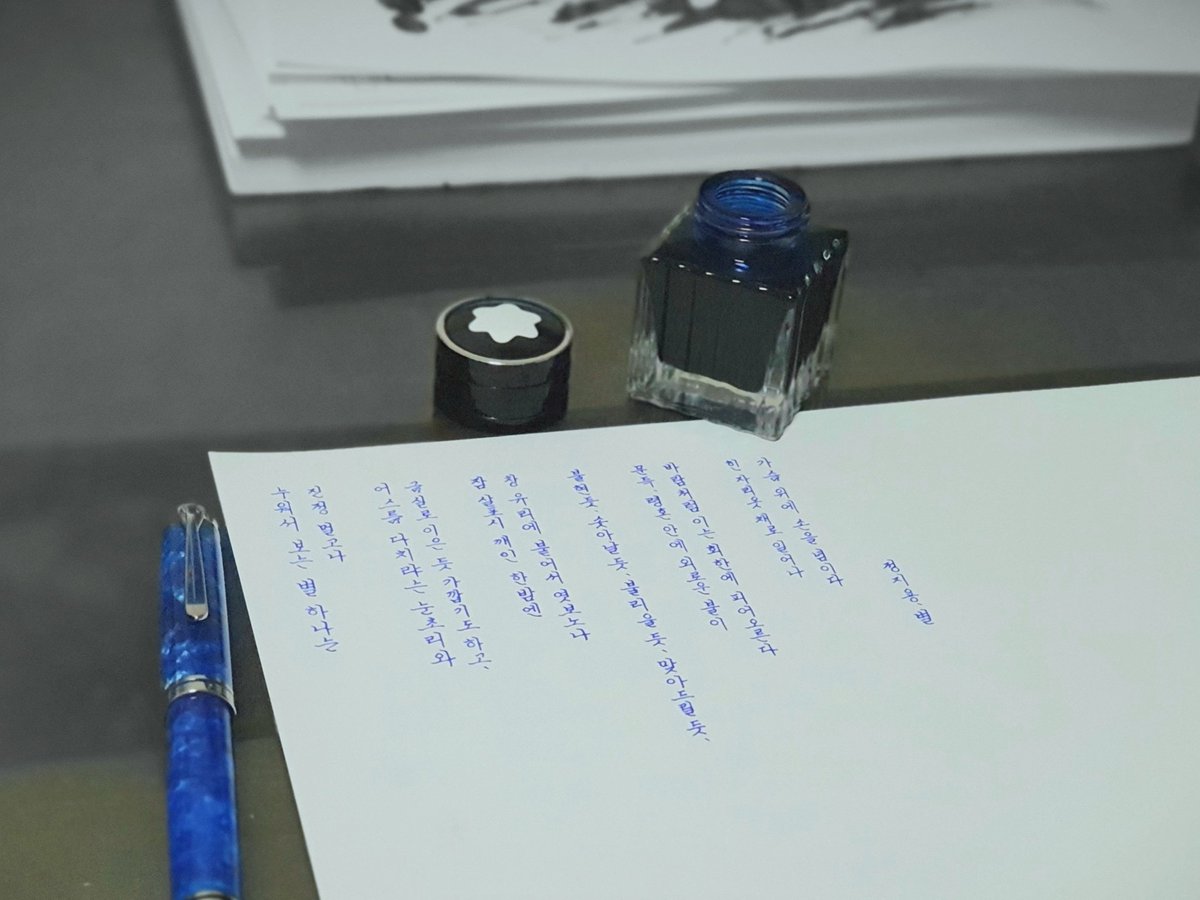 누워서 보는 별 하나는
진정 멀고나
어스름 다치랴는 눈초리와
금실로 이은 듯 가깝기도 하고,
잠 살포시 깨인 한밤엔
창 유리에 붙어서 엿보노나
불현듯, 솟아날 듯, 불리울 듯, 맞아드릴 듯,
문득 령혼 안에 외로운 불이
바람처럼 이는 회한에 피어오른다
흰 자리옷 채로 일어나
가슴 위에 손을 념이다
정지용, 별